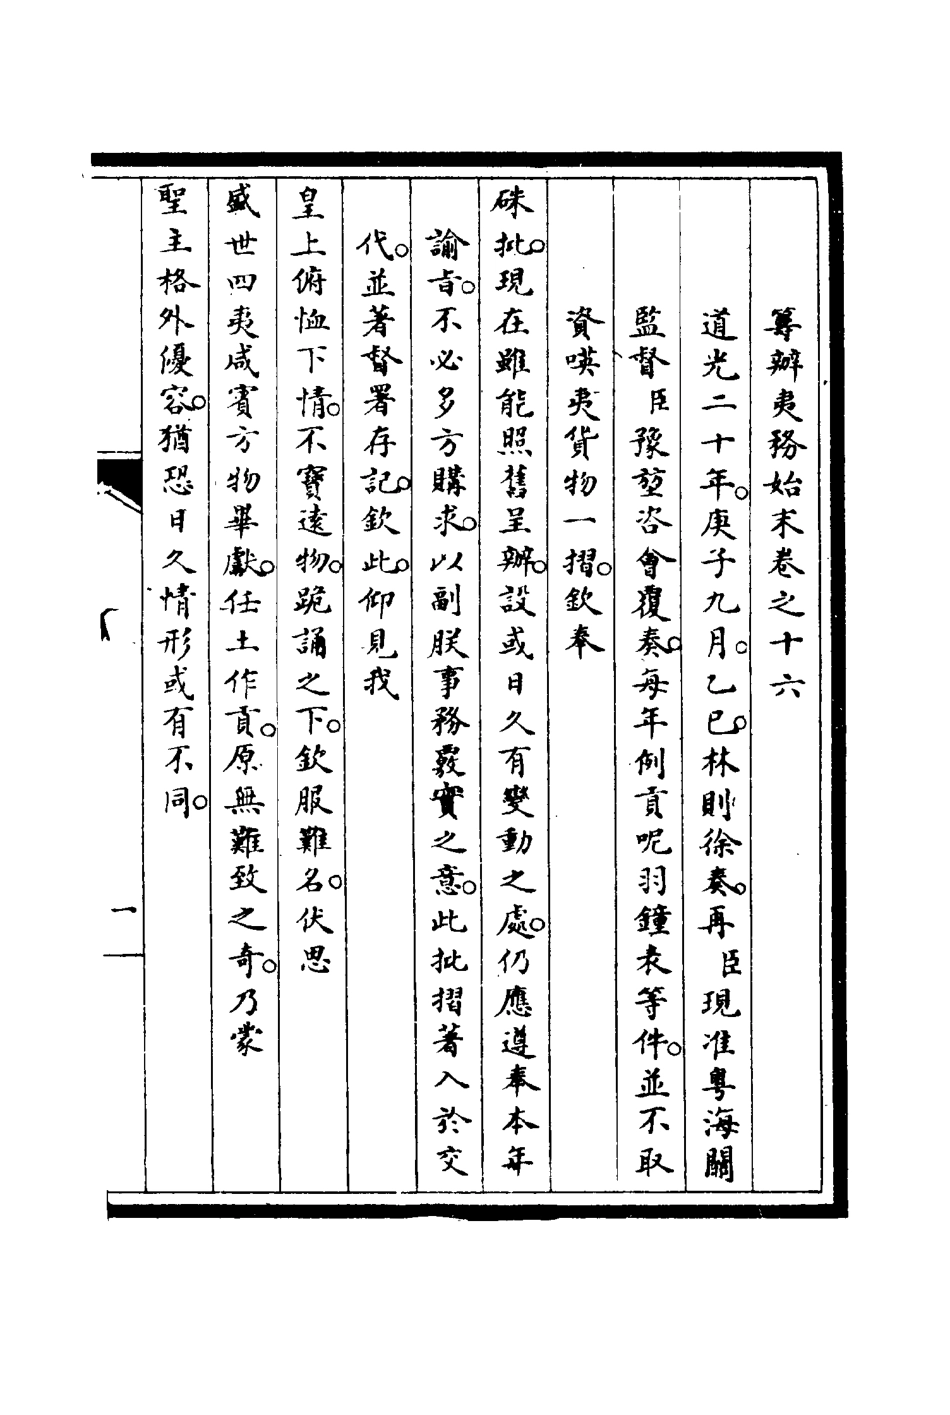 籌辦夷務始末卷之十六
道光二十年。庚子九月。乙巳。林則徐奏。再臣現准粵海關
監督臣豫堃咨會覆奏。每年例貢呢羽鐘表等件。並不取
資嘆夷貨物一摺。欽奉
硃批。現在雖能照舊呈辦。設或日久有變動之處。仍應遵奉本年
諭旨。不必多方購求。以副朕事務覈實之意。此批摺著入於交
代。並著督署存記。欽此。仰見我
皇上俯恤下情。不寶遠物。跪誦之下。欽服難名。伏思
盛世四夷咸賓方物畢獻。任土作貢。原無難致之奇。乃蒙
聖主格外優容。猶恐日久情形或有不同。
一